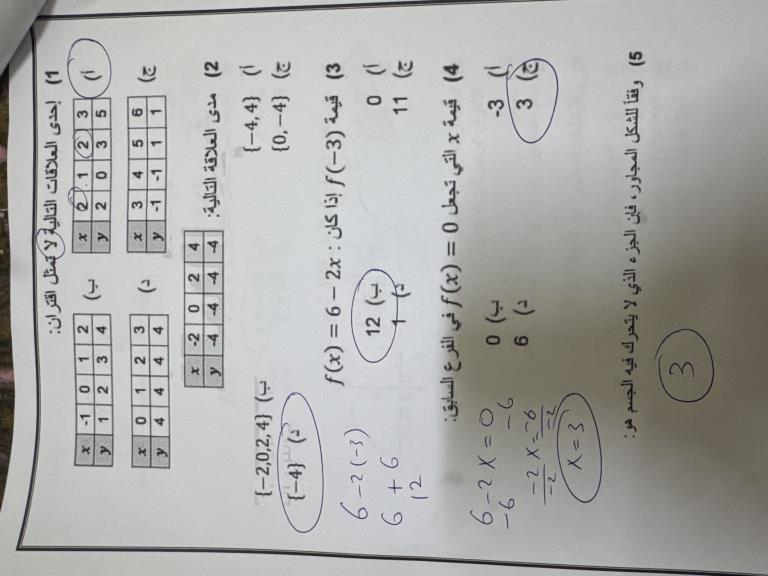 1) إحدى العلاقات التالية لا تمثل اقتران:
أ) x 2 1 2 3
y 2 0 3 5
ب) x -1 0 1 2
y 1 2 3 4
ج) x 3 4 5 6
y -1 -1 1 1
د) x 0 1 2 3
y 4 4 4 4
2) مدى العلاقة التالية:
x -2 0 2 4
y -4 -4 -4 -4
أ) {-4,4} ب) {-2,0,2,4}
ج) {0,-4} د) {-4}
3) قيمة f(-3) إذا كان: f(x) = 6 - 2x
أ) 0 ب) 12
ج) 11 د) 1
6 -2(-3)
6 + 6
12
4) قيمة x التي تجعل f(x) = 0 في الفرع السابق:
أ) -3 ب) 0
ج) 3 د) 6
6-2x=0
-6 -6
-2x=-6
-2 -2
x=3
5) وفقاً للشكل المجاور، فإن الجزء الذي لا يتحرك فيه الجسم هو:
3